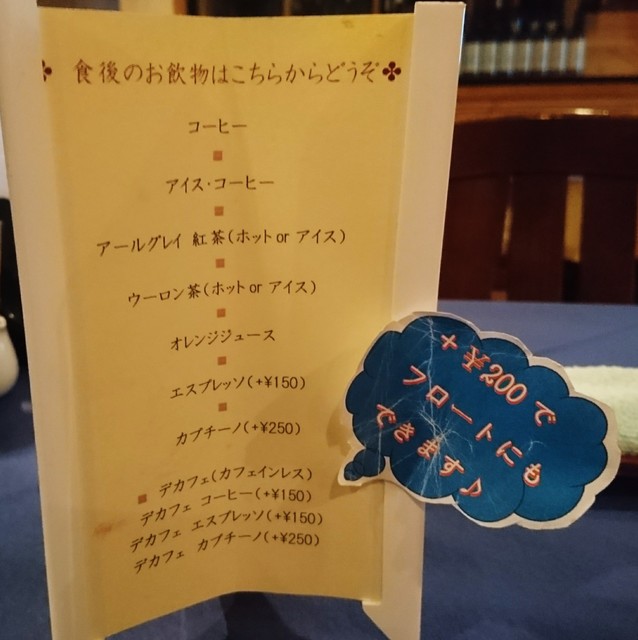 食後のお飲物はこちらからどうぞ
コーヒー
アイス・コーヒー
アールグレイ 紅茶(ホット or アイス)
ウーロン茶(ホット or アイス)
オレンジジュース
エスプレッソ(+¥150)
カプチーノ(+¥250)
デカフェ(カフェインレス)
デカフェ コーヒー(+¥150)
デカフェ エスプレッソ(+¥150)
デカフェ カプチーノ(+¥250)
+¥200で
フロートにも
できます♪